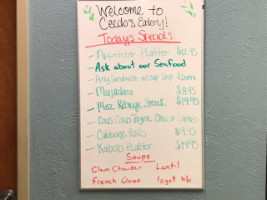 Welcome to
Ceedo's Eatery!
Today's Specials
Appetizer Platter
Ask about our Seafood
Any Sandwich w/ Cup Soup
Mujadara $8.95
14oz Ribeye Steak $19.95
Cabbage Rolls
Kabob Platter
Soups
Clam Chowder Lentil
French Onion